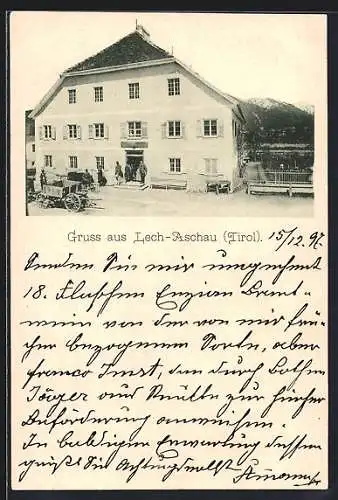 Gruss aus Lech-Aschau (Tirol). 15/12. 97.
Senden Sie mir umgehend
18. Flaschen Enzian Brannt-
wein von der von mir frü-
her bezogenen Sorte, aber
franco Imst, den durch Bothen
Jäger und zur
Beförderung anweisen.
In baldiger Erwartung dessen
grüßt Sie Achtungsvollst